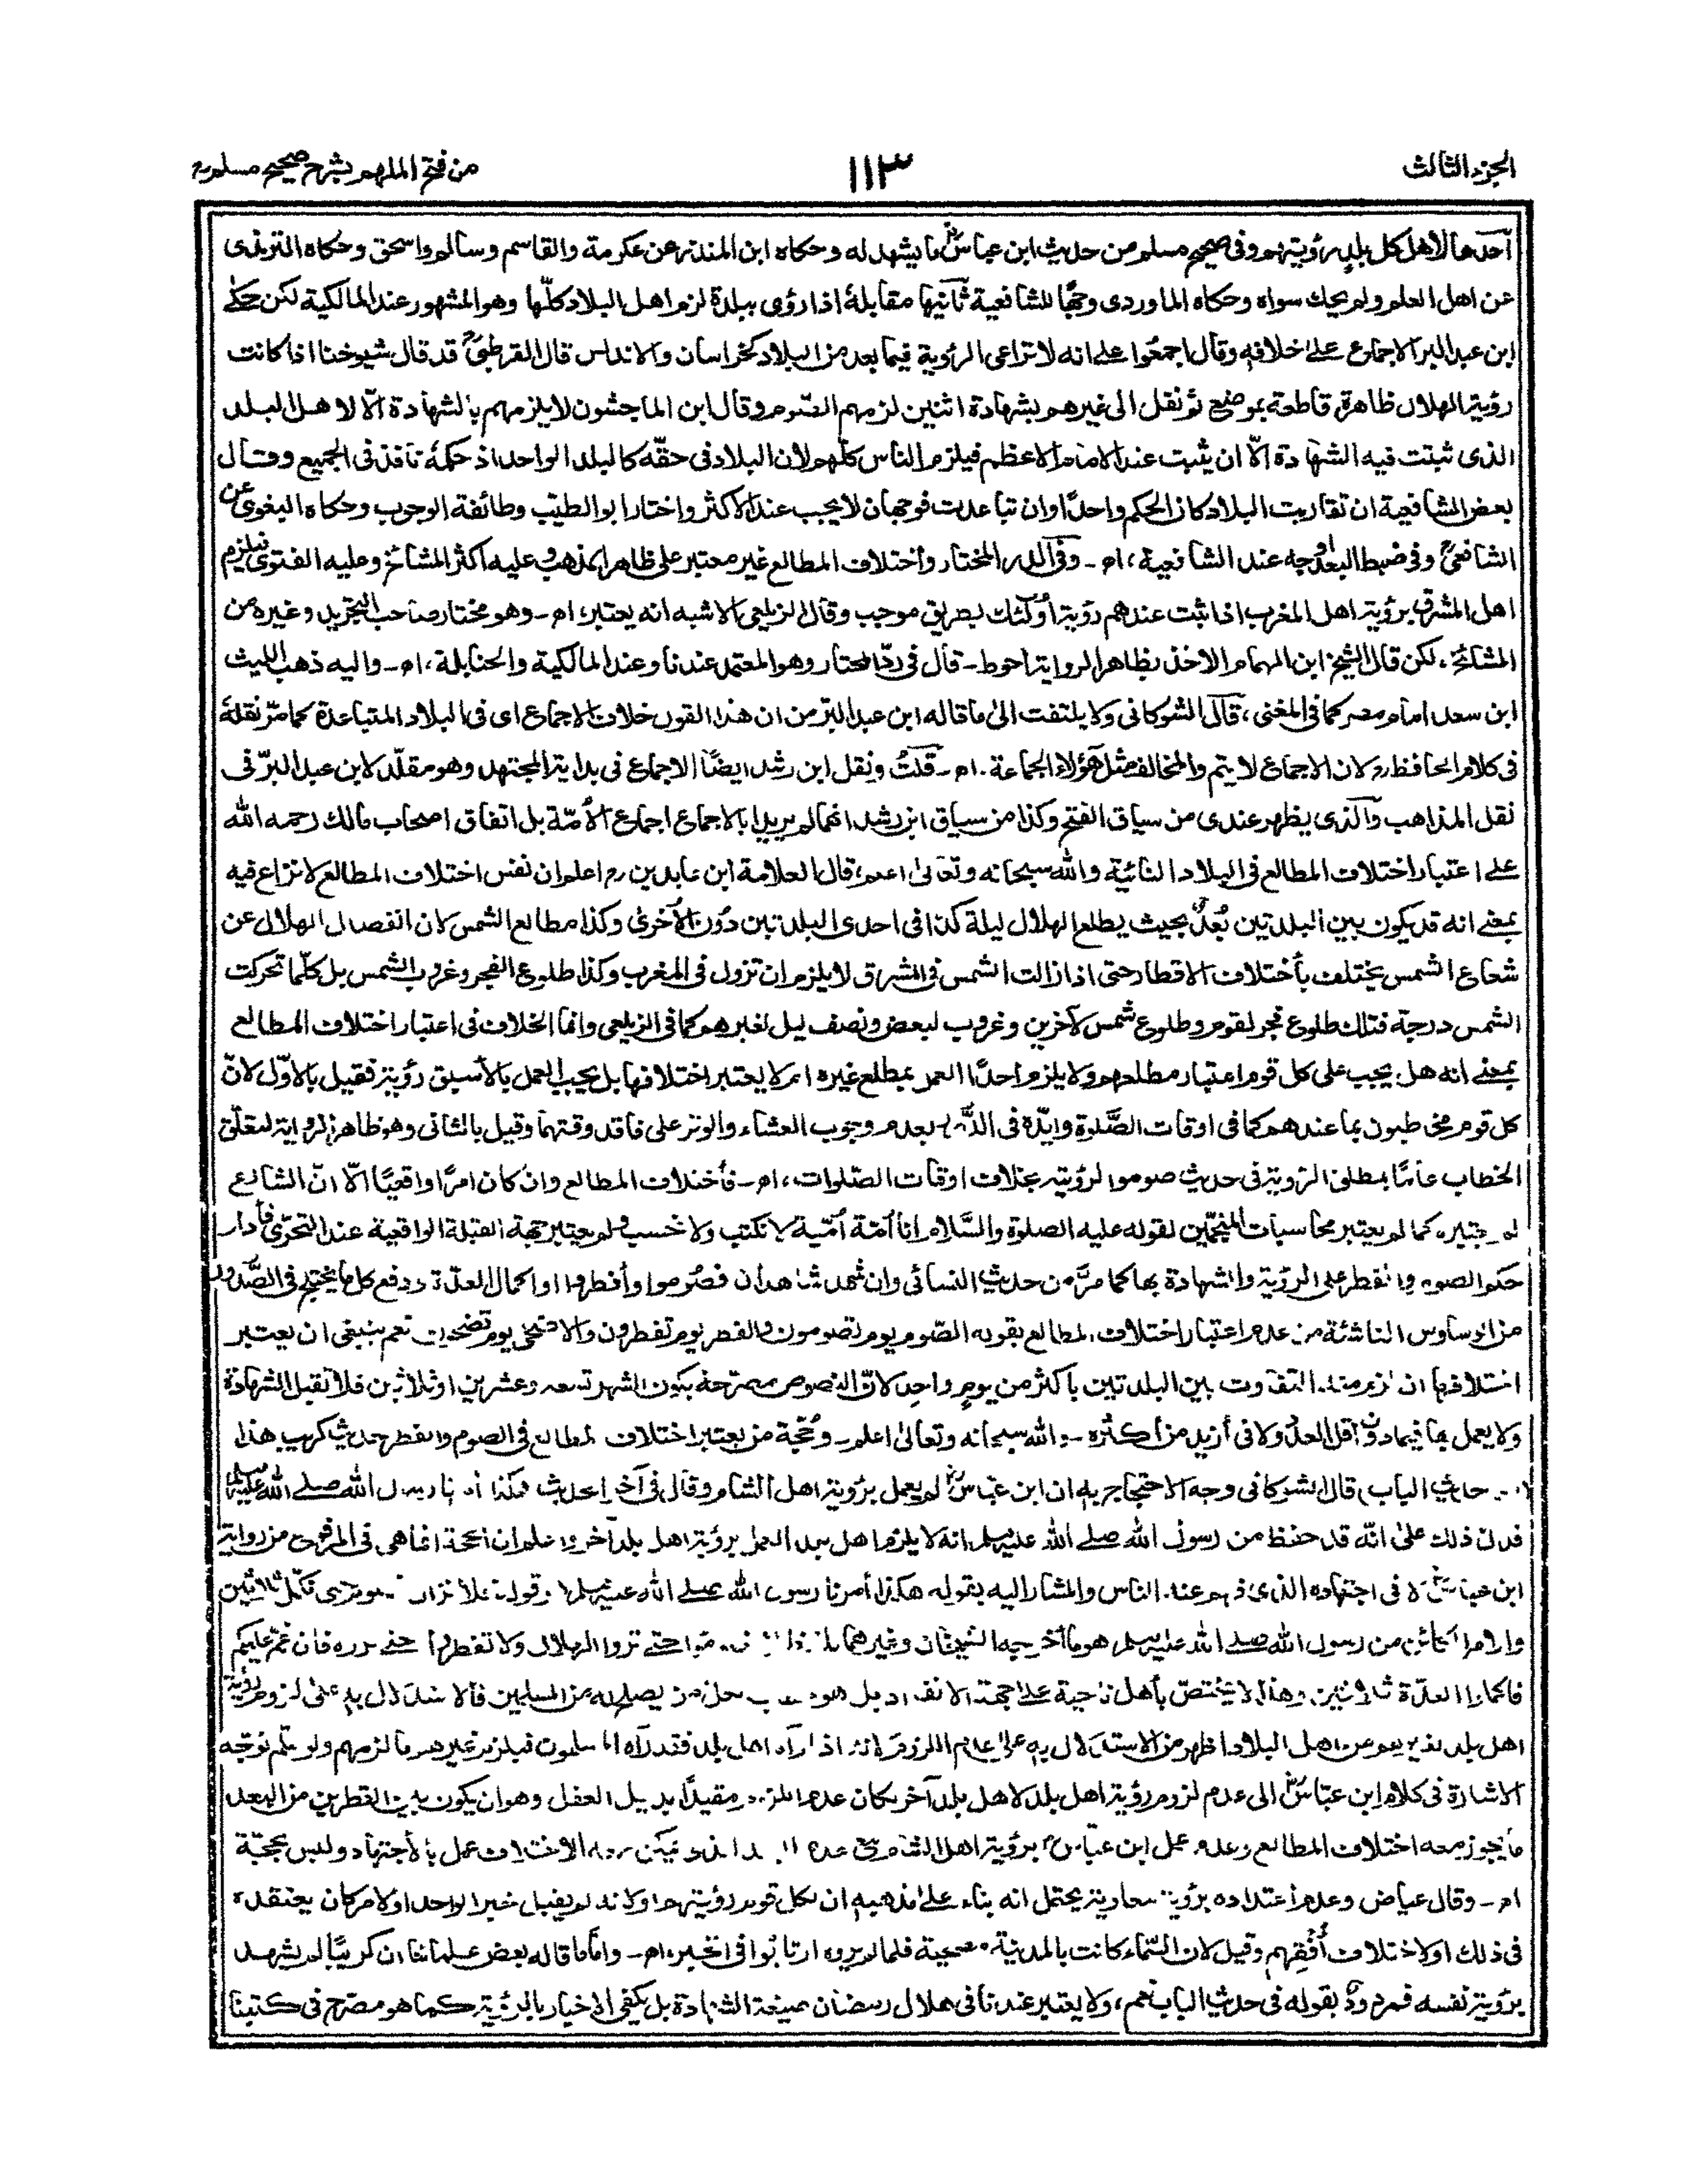 الجزء الثالث
١١٣
من فتح الملهم بشرح صحيح مسلم
أحدها لأهل كل بلد رؤيتهم وفى صحيح مسلم من حديث ابن عباس ما يشهد له وحكاه ابن المنذر عن عكرمة والقاسم وسالم واسحق وحكاه الترمذى
عن اهل العلم ولم يحك سواه وحكاه الماوردى وجها للشافعية ثانيها مقابلة اذا رؤى ببلدة لزم اهل البلاد كلها وهو المشهور عند المالكية لكن حكى
ابن عبد البر الاجماع على خلافه وقال اجمعوا على انه لا تراعى الرؤية فيما بعد من البلاد كخراسان والاندلس قال القرطبى قد قال شيوخنا اذا كانت
رؤية الهلال ظاهرة قاطعة بموضع ثم نقل الى غيرهم بشهادة اثنين لزمهم الصوم وقال ابن الماجشون لا يلزمهم بالشهادة الا لاهل البلد
الذى ثبتت فيه الشهادة الا ان يثبت عند الامام الاعظم فيلزم الناس كلهم لان البلاد فى حقه كالبلد الواحد اذ حكمه نافذ فى الجميع وقال
بعض الشافعية ان تقاربت البلاد كان الحكم واحدا وان تباعدت فوجهان لا يجب عند الاكثر واختار ابو الطيب وطائفة الوجوب وحكاه البغوى عن
الشافعى وفى ضبط البعد اوجه عند الشافعية، اھ - وفى الدر المختار واختلاف المطالع غير معتبر على ظاهر المذهب وعليه اكثر المشائخ وعليه الفتوى فيلزم
اهل المشرق برؤية اهل المغرب اذا ثبت عندهم رؤية أولئك بطريق موجب وقال الزيلعى الاشبه انه يعتبر، اھ - وهو مختار صاحب التجريد وغيره من
المشائخ، لكن قال الشيخ ابن الهمام الاخذ بظاهر الرواية احوط - قال فى رد المحتار وهو المعتمد عندنا وعند المالكية والحنابلة، اھ - واليه ذهب الليث
ابن سعد امام مصر كما فى المغنى، قال الشوكانى ولا يلتفت الى ما قاله ابن عبد البر من ان هذا القول خلاف الاجماع اى فى البلاد المتباعدة كما مر نقله
فى كلام الحافظ رہ لان الاجماع لا يتم والمخالف مثل هؤلاء الجماعة. اھ - قلت ونقل ابن رشد ايضا الاجماع فى بداية المجتهد وهو مقلد لابن عبد البر فى
نقل المذاهب والذى يظهر عندى من سياق الفتح وكذا من سياق ابن رشد انهما لم يريدا بالاجماع اجماع الأمة بل اتفاق اصحاب مالك رحمه الله
على اعتبار اختلاف المطالع فى البلاد النائية والله سبحانه وتعالى اعلم، قال العلامة ابن عابدين رہ اعلم ان نفس اختلاف المطالع لا نزاع فيه
بمعنى انه قد يكون بين البلدتين بعد بحيث يطلع الهلال ليلة كذا فى احدى البلدتين دون الأخرى وكذا مطالع الشمس لان انفصال الهلال عن
شعاع الشمس يختلف بأختلاف الاقطار حتى اذا زالت الشمس فى المشرق لا يلزم ان تزول فى المغرب وكذا طلوع الفجر وغروب الشمس بل كلما تحركت
الشمس درجة فتلك طلوع فجر لقوم وطلوع شمس لآخرين وغروب لبعض ونصف ليل لغيرهم كما فى الزيلعى وانما الخلاف فى اعتبار اختلاف المطالع
بمعنى انه هل يجب على كل قوم اعتبار مطلعهم ولا يلزم احدا العمل بمطلع غيره ام لا يعتبر اختلافها بل يجب العمل بالأسبق رؤية فقيل بالاول لان
كل قوم مخاطبون بما عندهم كما فى اوقات الصلوة وايده فى الدرر بعدم وجوب العشاء والوتر على فاقد وقتهما وقيل بالثانى وهو ظاهر الرواية لتعلق
الخطاب عاما بمطلق الرؤية فى حديث صوموا لرؤيته بخلاف اوقات الصلوات، اھ - فأختلاف المطالع وان كان امرا واقعيا الا ان الشارع
لم يعتبره كما لم يعتبر محاسبات المنجمين لقوله عليه الصلوة والسلام انا أمة أمية لا نكتب ولا نحسب ولم يعتبر جهة القبلة الواقعية عند التحرى فأدار
حكم الصوم والفطر على الرؤية والشهادة بها كما مر من حديث النسائى وان شهد شاهدان فصوموا وأفطروا او اكمال العدة ودفع كل ما يختلج فى الصدور
من الوساوس الناشئة من عدم اعتبار اختلاف المطالع بقوله الصوم يوم تصومون والفطر يوم تفطرون والاضحى يوم تضحون نعم ينبغى ان يعتبر
اختلافها ان لزم منه التفاوت بين البلدتين باكثر من يوم واحد لان النصوص مصرحة بكون الشهر تسعة وعشرين او ثلاثين فلا تقبل الشهادة
ولا يعمل بها فيما دون أقل العدد ولا فى أزيد من أكثره - والله سبحانه وتعالى اعلم - وحجة من يعتبر اختلاف المطالع فى الصوم والفطر حديث كريب هذا
حديث الباب، قال الشوكانى وجه الاحتجاج به ان ابن عباس لم يعمل برؤية اهل الشام وقال فى آخر الحديث هكذا أمرنا رسول الله صلى الله عليه وسلم
فدل ذلك على انه قد حفظ من رسول الله صلى الله عليه وسلم انه لا يلزم اهل بلد العمل برؤية اهل بلد آخر واعلم ان الحجة انما هى فى المرفوع من رواية
ابن عباس لا فى اجتهاده الذى فهم عنه الناس والمشار اليه بقوله هكذا أمرنا رسول الله صلى الله عليه وسلم هو قوله فلا نزال نصوم حتى نكمل ثلاثين
والامر الكائن من رسول الله صلى الله عليه وسلم هو ما أخرجه الشيخان وغيرهما بلفظ لا تصوموا حتى تروا الهلال ولا تفطروا حتى تروه فان غم عليكم
فاكملوا العدة ثلاثين وهذا لا يختص بأهل ناحية على جهة الانفراد بل هو خطاب لكل من يصلح له من المسلمين فالاستدلال به على لزوم رؤية
اهل بلد لغيرهم من اهل البلاد اظهر من الاستدلال به على عدم اللزوم لانه اذا رآه اهل بلد فقد رآه المسلمون فيلزم غيرهم ما لزمهم ولو سلم توجه
الاشارة فى كلام ابن عباس الى عدم لزوم رؤية اهل بلد لاهل بلد آخر لكان عدم اللزوم مقيدا بدليل العقل وهو ان يكون بين القطرين من البعد
ما يجوز معه اختلاف المطالع وعدم عمل ابن عباس برؤية اهل الشام مع عدم البعد الذى يمكن معه الاختلاف عمل بالأجتهاد وليس بحجة
اھ - وقال عياض وعدم اعتداده برؤية معاوية يحتمل انه بناء على مذهبه ان لكل قوم رؤيتهم او لانه لم يقبل خبر الواحد او لامر كان يعتقده
فى ذلك او لاختلاف أفقهم وقيل لان السماء كانت بالمدينة مصحية فلما لم يروه ارتابوا فى الخبر، اھ - وأما ما قاله بعض علمائنا ان كريبا لم يشهد
برؤية نفسه فمردود بقوله فى حديث الباب نعم، ولا يعتبر عندنا فى هلال رمضان صيغة الشهادة بل يكفى الاخبار بالرؤية كما هو مصرح فى كتبنا